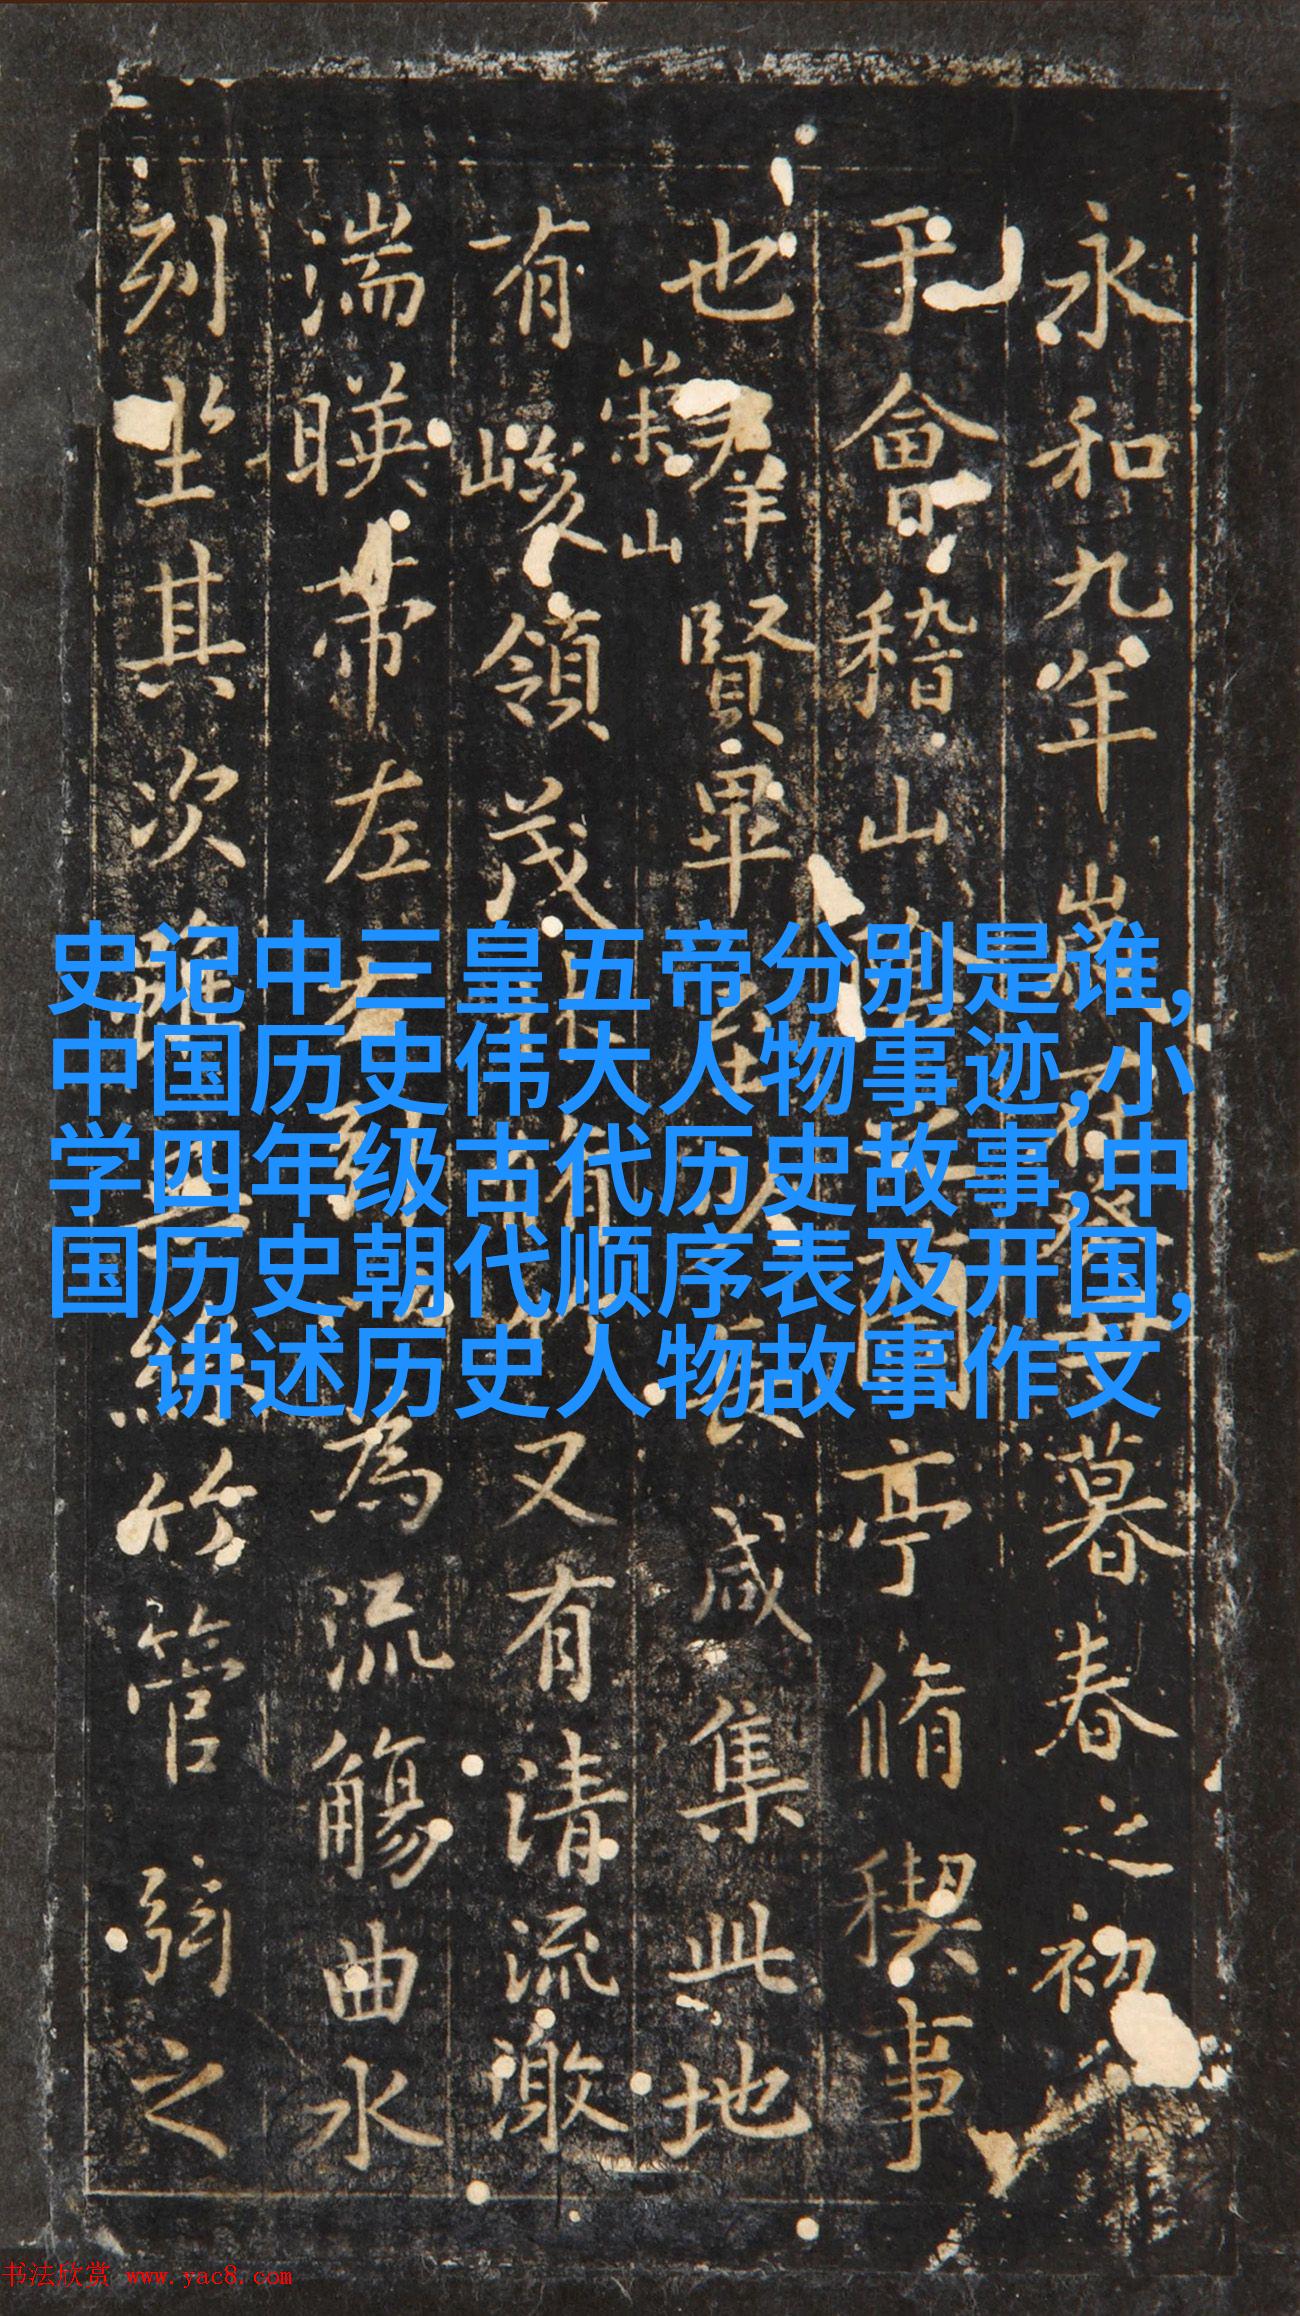 永和九年歲在癸丑暮春之初
于會稽山陰之蘭亭脩禊事
也群賢畢至少長咸集此地
崇山
有峻領茂林脩竹又有清流激
湍暎帶左右引以為流觴曲水
列坐其次雖無絲竹管弦之
史记中三皇五帝分别是谁,
中国历史伟大人物事迹,小
学四年级古代历史故事,中
国历史朝代顺序表及开国,
讲述历史人物故事作文
书法欣赏 www.yac8.com